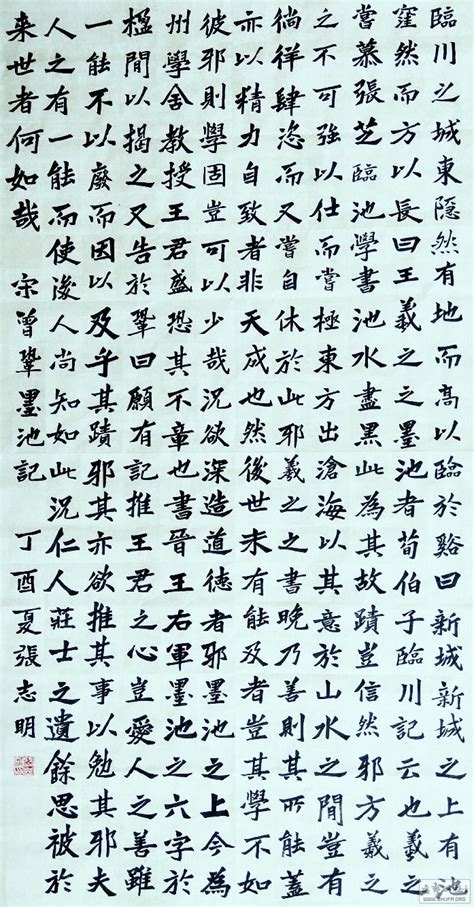 臨川之城東隱然有地而高以臨於谿曰新城新城之上有池
窪然而方以長曰王羲之之墨池者荀伯子臨川記云也羲之
嘗慕張芝臨池學書池水盡黑此為其故蹟豈信然邪方羲之
之不可強以仕而嘗極東方出滄海以其意於山水之間豈有
徜徉肆恣而又嘗自休於此邪羲之之書晚乃善則其所能蓋
亦以精力自致者非天成也然後世未有能及者豈其學不如
彼邪則學固豈可以少哉況欲深造道德者邪墨池之上今為
州學舍教授王君盛恐其不章也書晉王右軍墨池之六字於
楹間以揭之又告於鞏曰願有記推王君之心豈愛人之善雖
一能不以廢而因以及乎其蹟邪其亦欲推其事以勉其邪夫
人之有一能而使後人尚知如此況仁人莊士之遺餘思被於
來世者何如哉 宋曾鞏墨池記 丁酉夏張志明